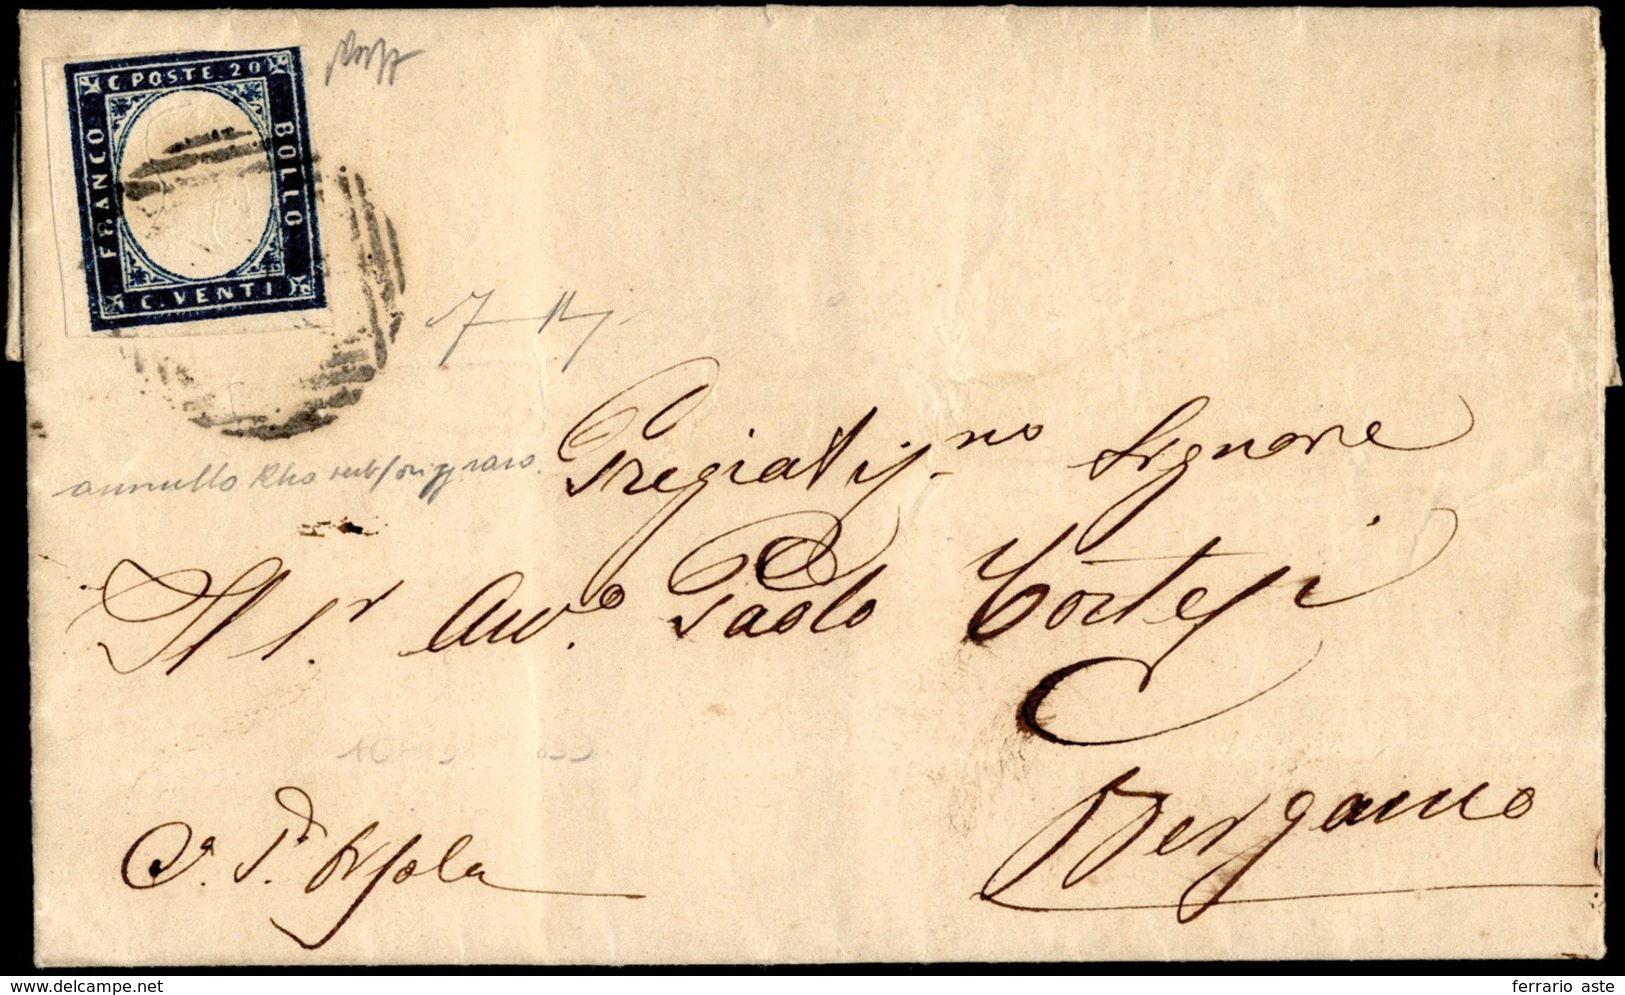 C. POSTE 20
FRANCO
BOLLO
C. VENTI
annullo Rho
raro.
Pregiatissmo Signore
Al Sr. Avv.o Paolo Cortesi
Bergamo
www.delcampe.net
ferrario aste